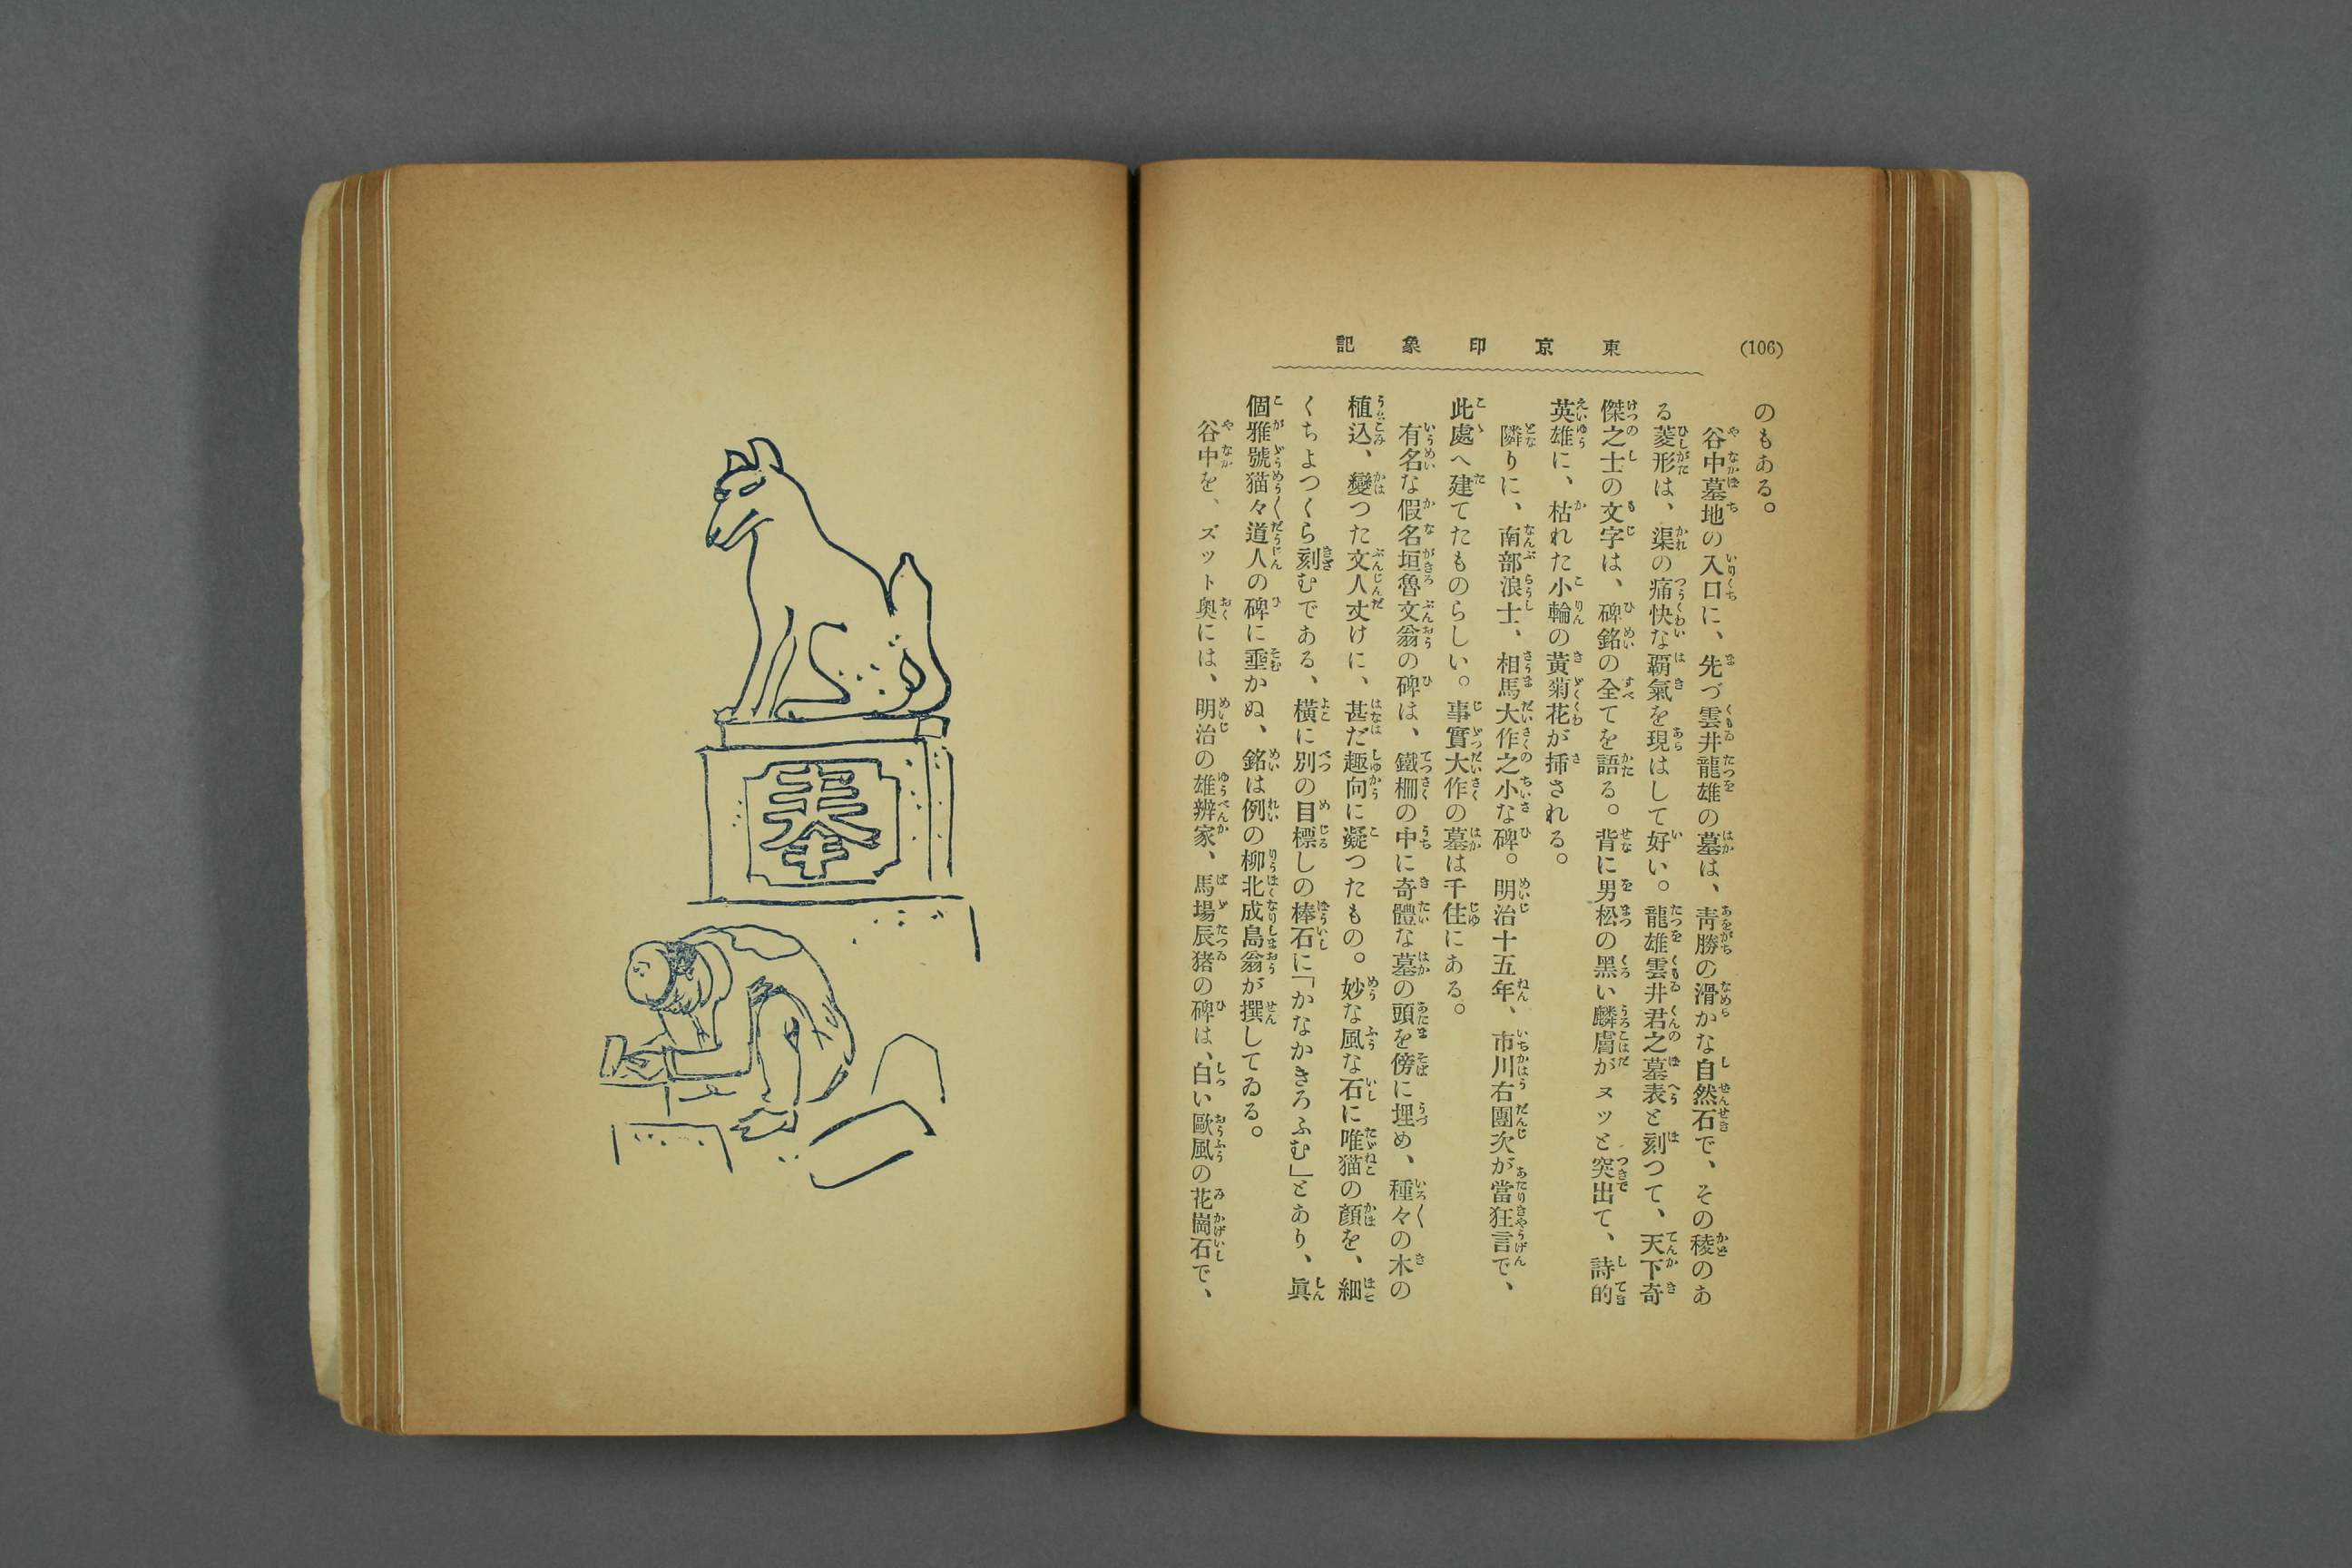 (106)
東京印象記
のもある。
谷中墓地の入口に、先づ雲井龍雄の墓は、靑勝の滑かな自然石で、その稜のあ
る菱形は、渠の痛快な覇氣を現はして好い。龍雄雲井君之墓表と刻つて、天下奇
傑之士の文字は、碑銘の全てを語る。背に男松の黑い麟膚がヌッと突出て、詩的
英雄に、枯れた小輪の黃菊花が揷される。
隣りに、南部浪士、相馬大作之小な碑。明治十五年、市川右團次が當狂言で、
此處へ建てたものらしい。事實大作の墓は千住にある。
有名な假名垣魯文翁の碑は、鐵柵の中に奇體な墓の頭を傍に埋め、種々の木の
植込、變つた文人丈けに、甚だ趣向に凝つたもの。妙な風な石に唯猫の顏を、細
くちよつくら刻むである、橫に別の目標しの棒石に「かなかきろふむ」とあり、眞
個雅號猫々道人の碑に乖かぬ、銘は例の柳北成島翁が撰してゐる。
谷中を、ズット奧には、明治の雄辨家、馬場辰猪の碑は、白い歐風の花崗石で、
奉